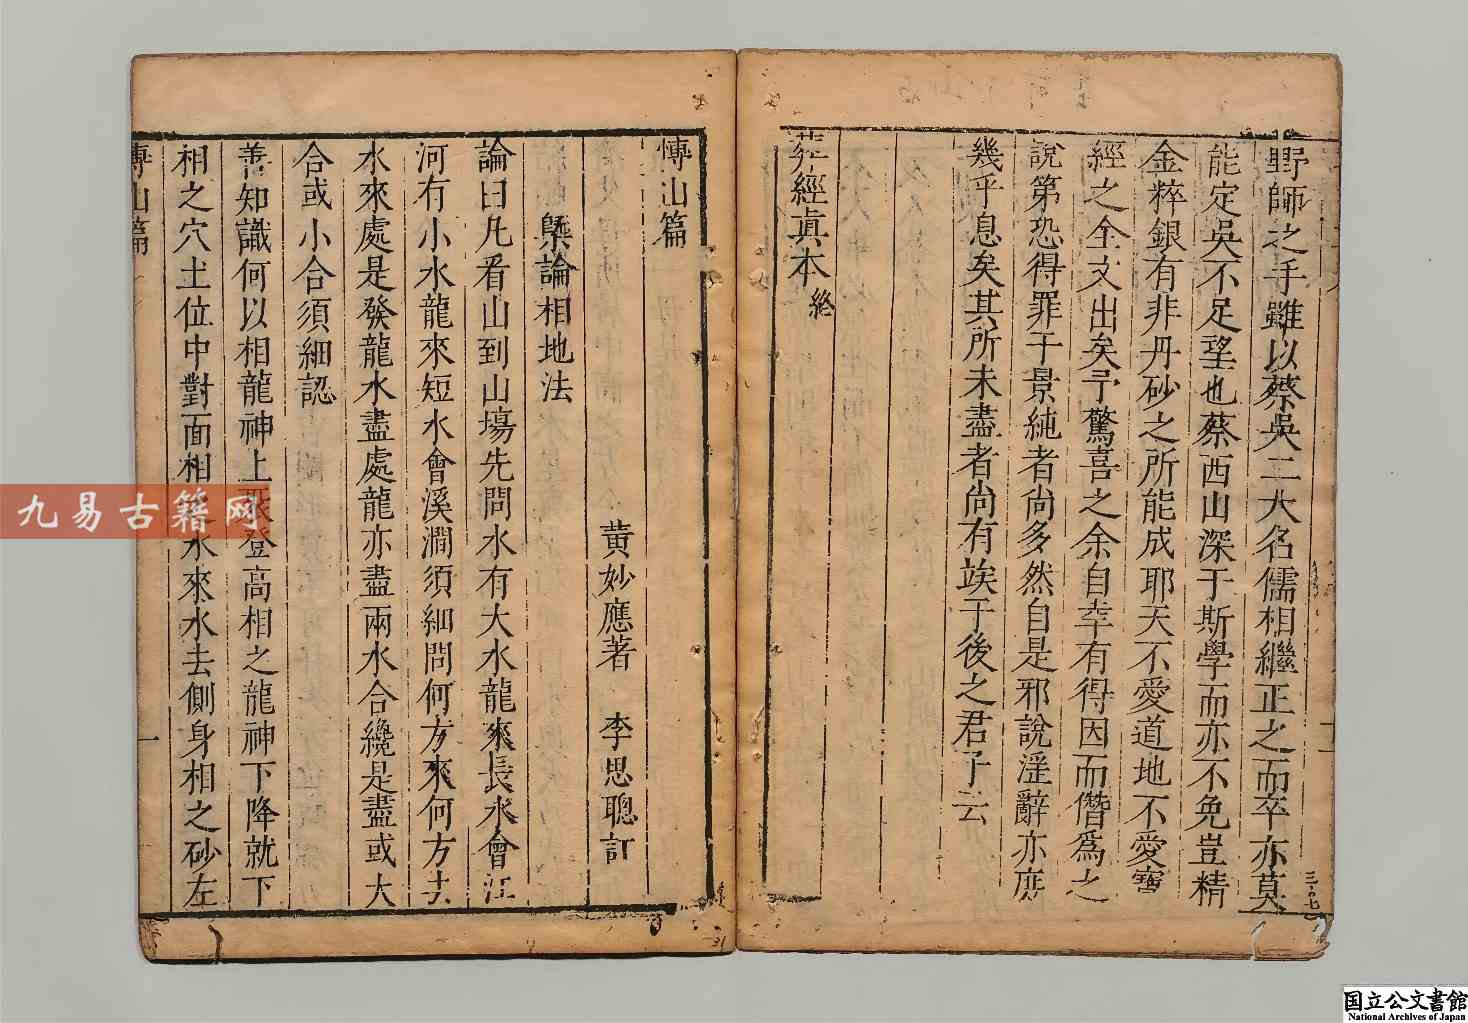 野師之手雖以蔡吳二大名儒相繼正之而卒亦莫
能定吳不足望也蔡西山深于斯學而亦不免豈精
金粹銀有非丹砂之所能成耶天不愛道地不愛寶
經之全文出矣予驚喜之余自幸有得因而僭爲之
說第恐得罪于景純者尚多然自是邪說淫辭亦庶
幾乎息矣其所未盡者尚有竢于後之君子云
葬經眞本 終
博山篇
黃妙應著 李思聰訂
槩論相地法
論曰凡看山到山塲先問水有大水龍來長水會江
河有小水龍來短水會溪澗須細問何方來何方去
水來處是發龍水盡處龍亦盡兩水合纔是盡或大
合或小合須細認
善知識何以相龍神上登高相之龍神下降就下
相之穴土位中對面相水來水去側身相之砂左
博山篇 一
九易古籍网
国立公文書館
National Archives of Japan